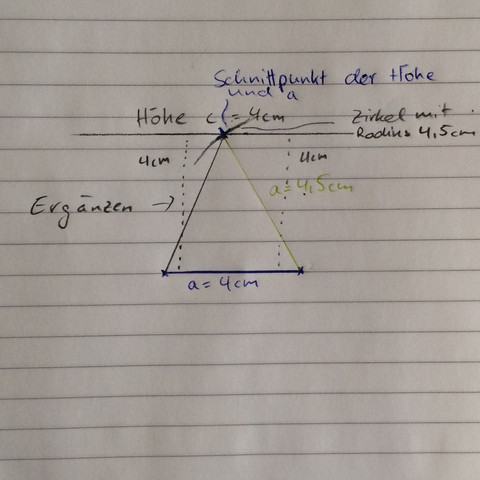 Schnittpunkt der Höhe
und a
Höhe c = 4cm
Zirkel mit
Radius 4,5cm
4cm
4cm
a = 4,5cm
Ergänzen →
a = 4cm